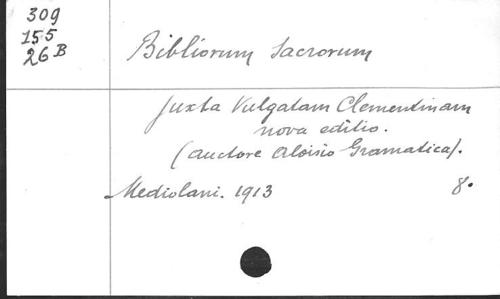 309
155
26 B
Bibliorum Sacrorum
juxta Vulgatam Clementinam
nova editio.
(auctore Aloisio Gramatica).
Mediolani. 1913 8.